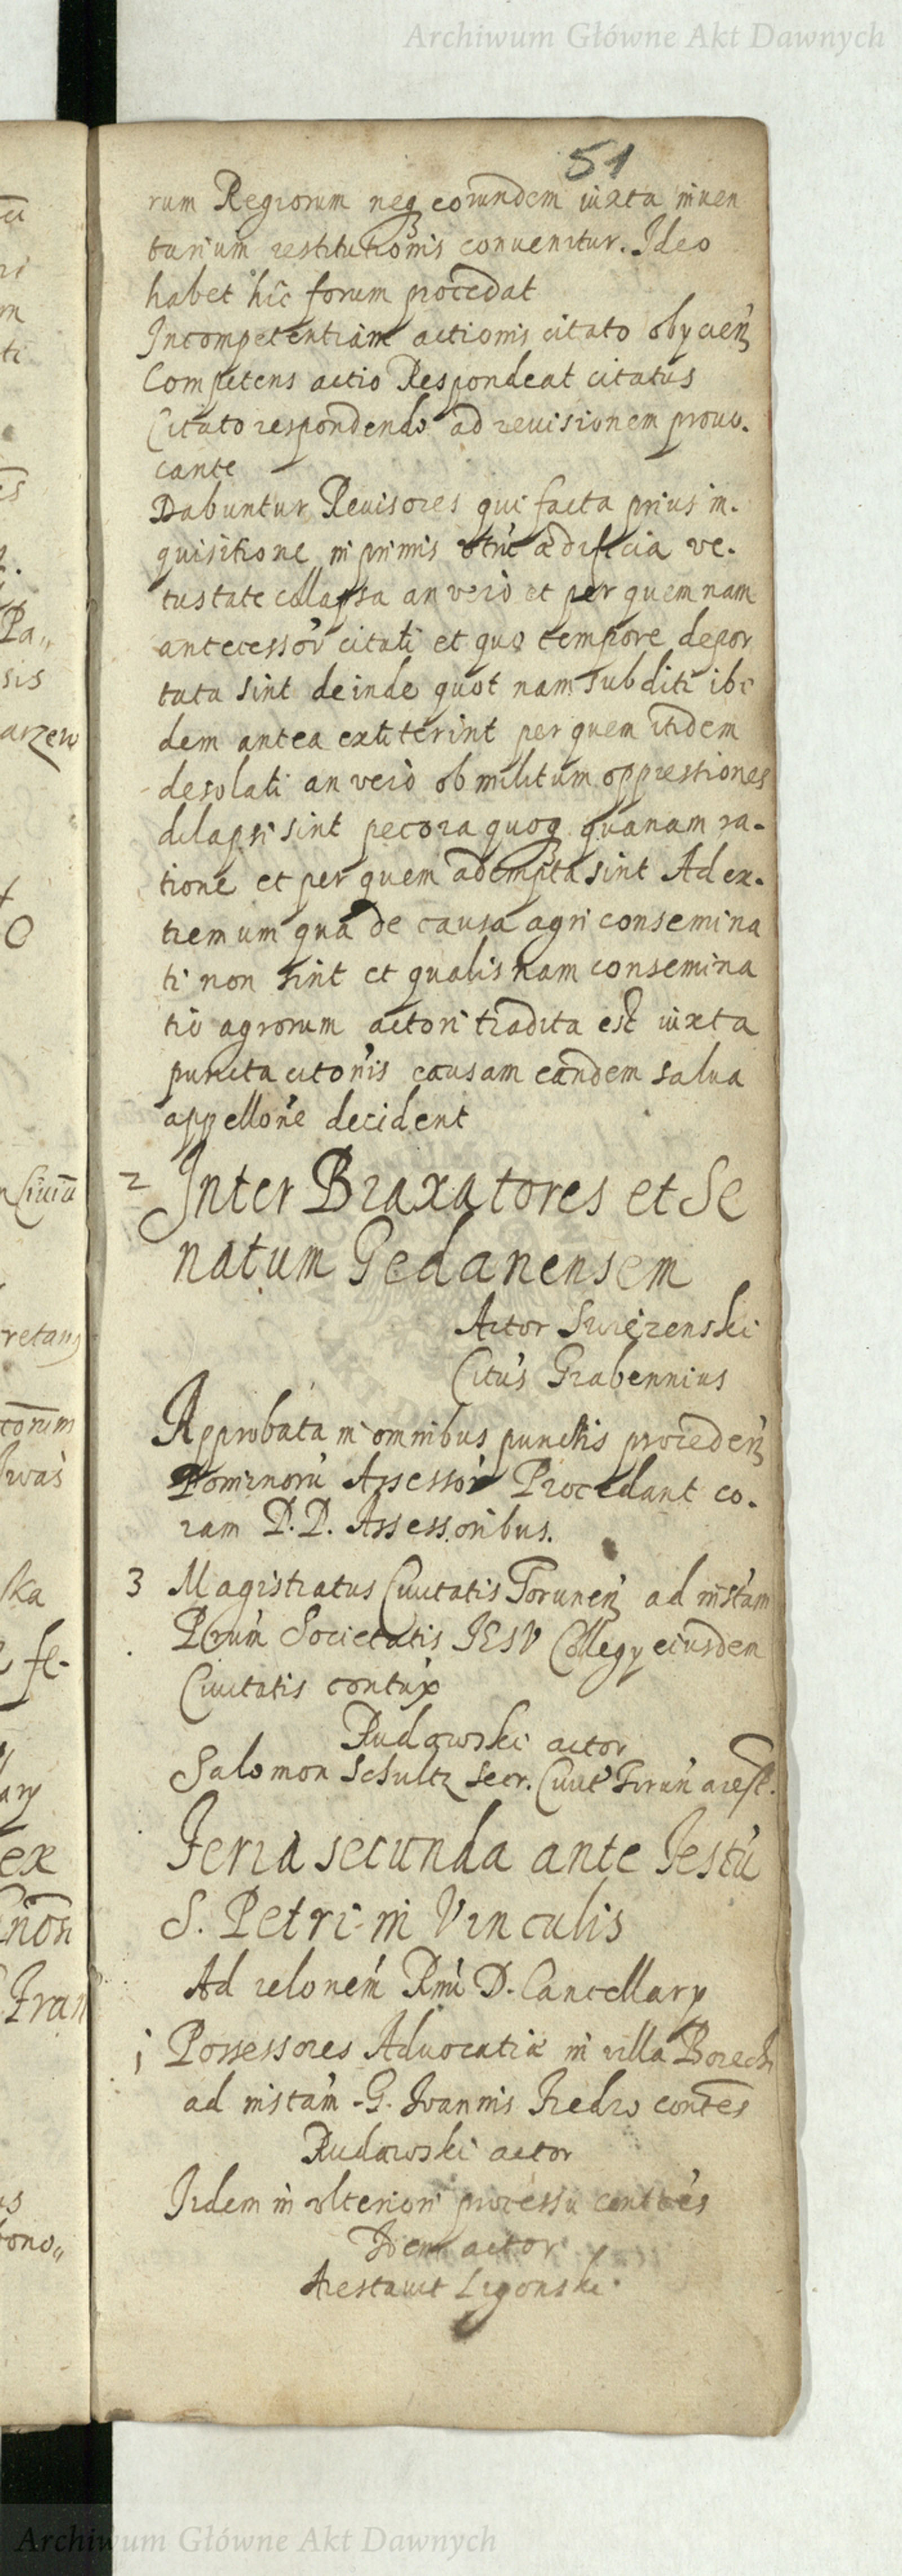 Archiwum Główne Akt Dawnych
51
rum Regiorum neq eorundem iuxta inuen
tarium restitutionis conuenitur. Ideo
habet hic forum procedat
Incompetentiam actionis citato obycien
Competens actio Respondeat citatus
Citato respondendo ad reuisionem prouo.
cante
Dabuntur Reuisores qui facta prius in.
quisitione in primis utru ædificia ve.
tustate collapsa an vero et per quemnam
antecessor citati et quo tempore depor
tata sint deinde quot nam subditi ibi
dem antea extiterint per quem itidem
desolati an vero ob militum oppressiones
dilapsi sint pecora quoq quanam ra.
tione et per quem adempta sint Ad ex.
tremum qua de causa agri consemina
ti non sint et qualisnam consemina
tio agrorum actori tradita est iuxta
puncta citonis causam eandem salua
appellone decident
2 Inter Braxatores et Se
natum Gedanensem
Actor Swiezenski
Citus Grabennius
Approbata in omnibus punctis proceden
Dominoru Assessor Procedant co.
ram D.D. Assessoribus.
3 Magistratus Ciuitatis Torunen ad instam
Prum Societatis IESV Collegy eiusdem
Ciuitatis contux
Rudawski actor
Salomon Schultz secr. Ciuit Torun arest.
Feria secunda ante Festu
S. Petri in Vinculis
Ad relonem Rmi D. Cancellary
1 Possessores Aduocatiæ in villa Borech
ad instam G. Ioannis Fredro contes
Rudawski actor
Iidem in vlteriori processu contces
Idem actor
Arestauit Ligonski
Archiwum Główne Akt Dawnych